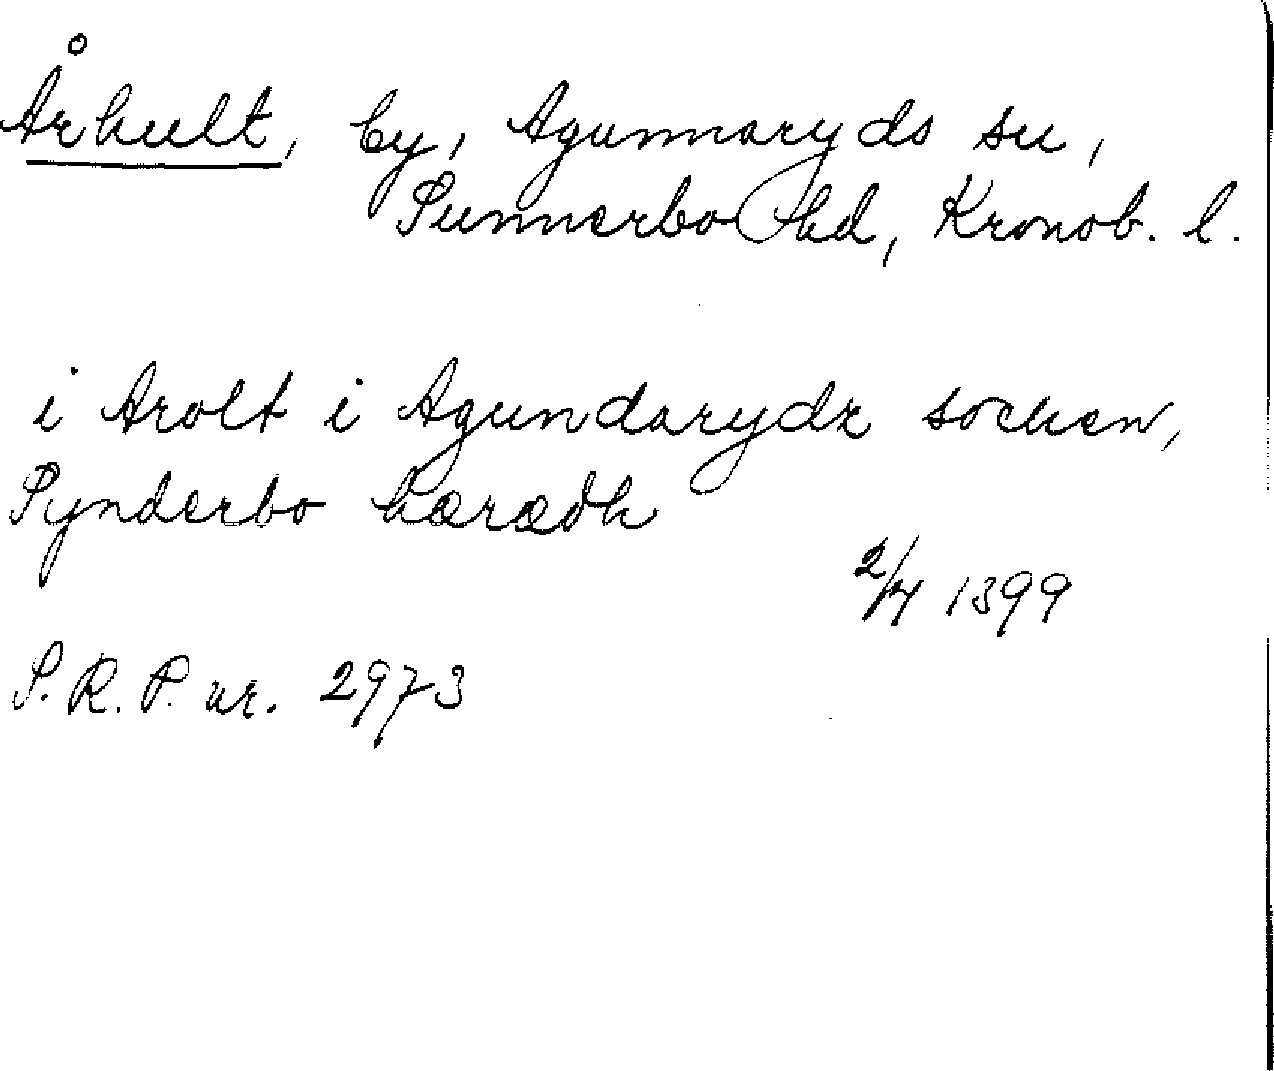 Århult, by, Agunnaryds sn,
Sunnerbo hd, Kronob. l.
i Arolt i Agundarydz socken,
Synderbo hærædh
2/4 1399
S.R.P. nr. 2973